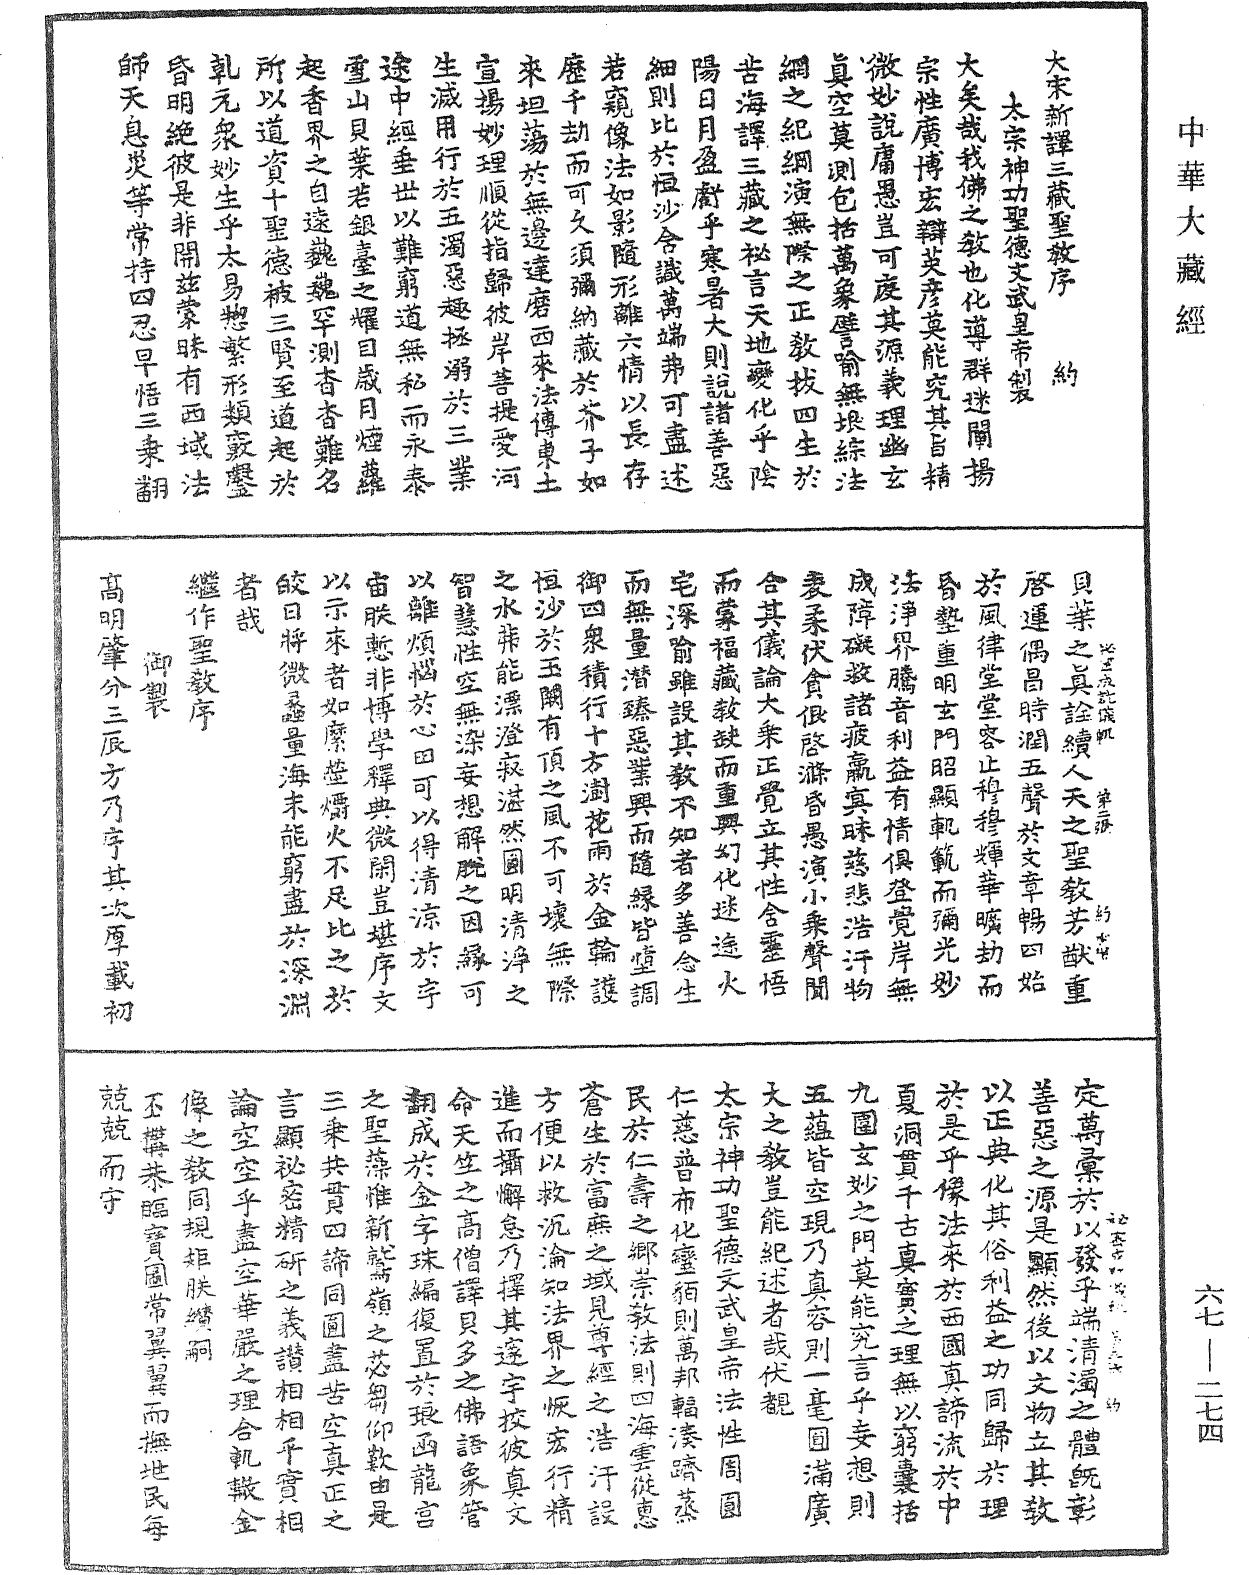 中華大藏經
大宋新譯三藏聖教序　約
太宗神功聖德文武皇帝製
大矣哉我佛之教也化導群迷闡揚
宗性廣博宏辯英彥莫能究其旨精
微妙說庸愚豈可度其源義理幽玄
真空莫測包括萬象譬喻無垠綜法
網之紀綱演無際之正教拔四生於
苦海譯三藏之祕言天地變化乎陰
陽日月盈虧乎寒暑大則說諸善惡
細則比於恒沙含識萬端弗可盡述
若窺像法如影隨形離六情以長存
歷千劫而可久須彌納藏於芥子如
來坦蕩於無邊達磨西來法傳東土
宣揚妙理順從指歸彼岸菩提愛河
生滅用行於五濁惡趣拯溺於三業
途中經垂世以難窮道無私而永泰
雪山貝葉若銀臺之耀目歲月煙蘿
起香界之自遠巍巍罕測杳杳難名
所以道資十聖德被三賢至道起於
乹元衆妙生乎太易揔繁形類竅鑿
昏明絕彼是非開茲蒙昧有西域法
師天息災等常持四忍早悟三乘翻
貝葉之真詮續人天之聖教芳猷重
啓運偶昌時潤五聲於文章暢四始
於風律堂堂容止穆穆輝華曠劫而
昏墊重明玄門昭顯軌範而彌光妙
法淨界騰音利益有情俱登覺岸無
成障礙救諸疲羸冥昧慈悲浩汗物
表柔伏貪佷啓滌昏愚演小乘聲聞
合其儀論大乘正覺立其性含靈悟
而蒙福藏教缺而重興幻化迷途火
宅深喻雖設其教不知者多善念生
而無量潛臻惡業興而隨緣皆墮調
御四衆積行十方澍花雨於金輪護
恒沙於玉闕有頂之風不可壞無際
之水非能漂澄寂湛然圓明清淨之
智慧性空無染妄想解脫之因緣可
以離煩惱於心田可以得清涼於宇
宙朕慙非博學釋典微閑豈堪序文
以示來者如縻螢爝火不足比之於
皎日將微蠡量海未能窮盡於深淵
者哉
繼作聖教序
御製
高明肇分三辰方乃序其次厚載初
定萬彙於以發乎端清濁之體旣彰
善惡之源是顯然後以文物立其教
以正典化其俗利益之功同歸於理
於是乎像法來於西國真諦流於中
夏洞貫千古真實之理無以窮囊括
九圍玄妙之門莫能究言乎妄想則
五蘊皆空現乃真容則一毫圓滿廣
大之教豈能紀述者哉伏覩
太宗神功聖德文武皇帝法性周圓
仁慈普布化蠻貊則萬邦輻湊躋蒸
民於仁壽之鄉崇教法則四海雲從惠
蒼生於富庶之域見尊經之浩汗設
方便以救沉淪知法界之恢宏行精
進而攝懈怠乃擇其邃宇挍彼真文
命天竺之高僧譯貝多之佛語象管
翻成於金字珠編復置於琅函龍宮
之聖藻惟新鷲嶺之苾蒭仰歎由是
三乘共貫四諦同圓盡苦空真正之
言顯祕密精研之義讚相相乎實相
論空空乎盡空華嚴之理合軌轍金
像之教同規矩朕纘嗣
丕搆恭臨寶圖常翼翼而撫世民每
兢兢而守
六七—二七四